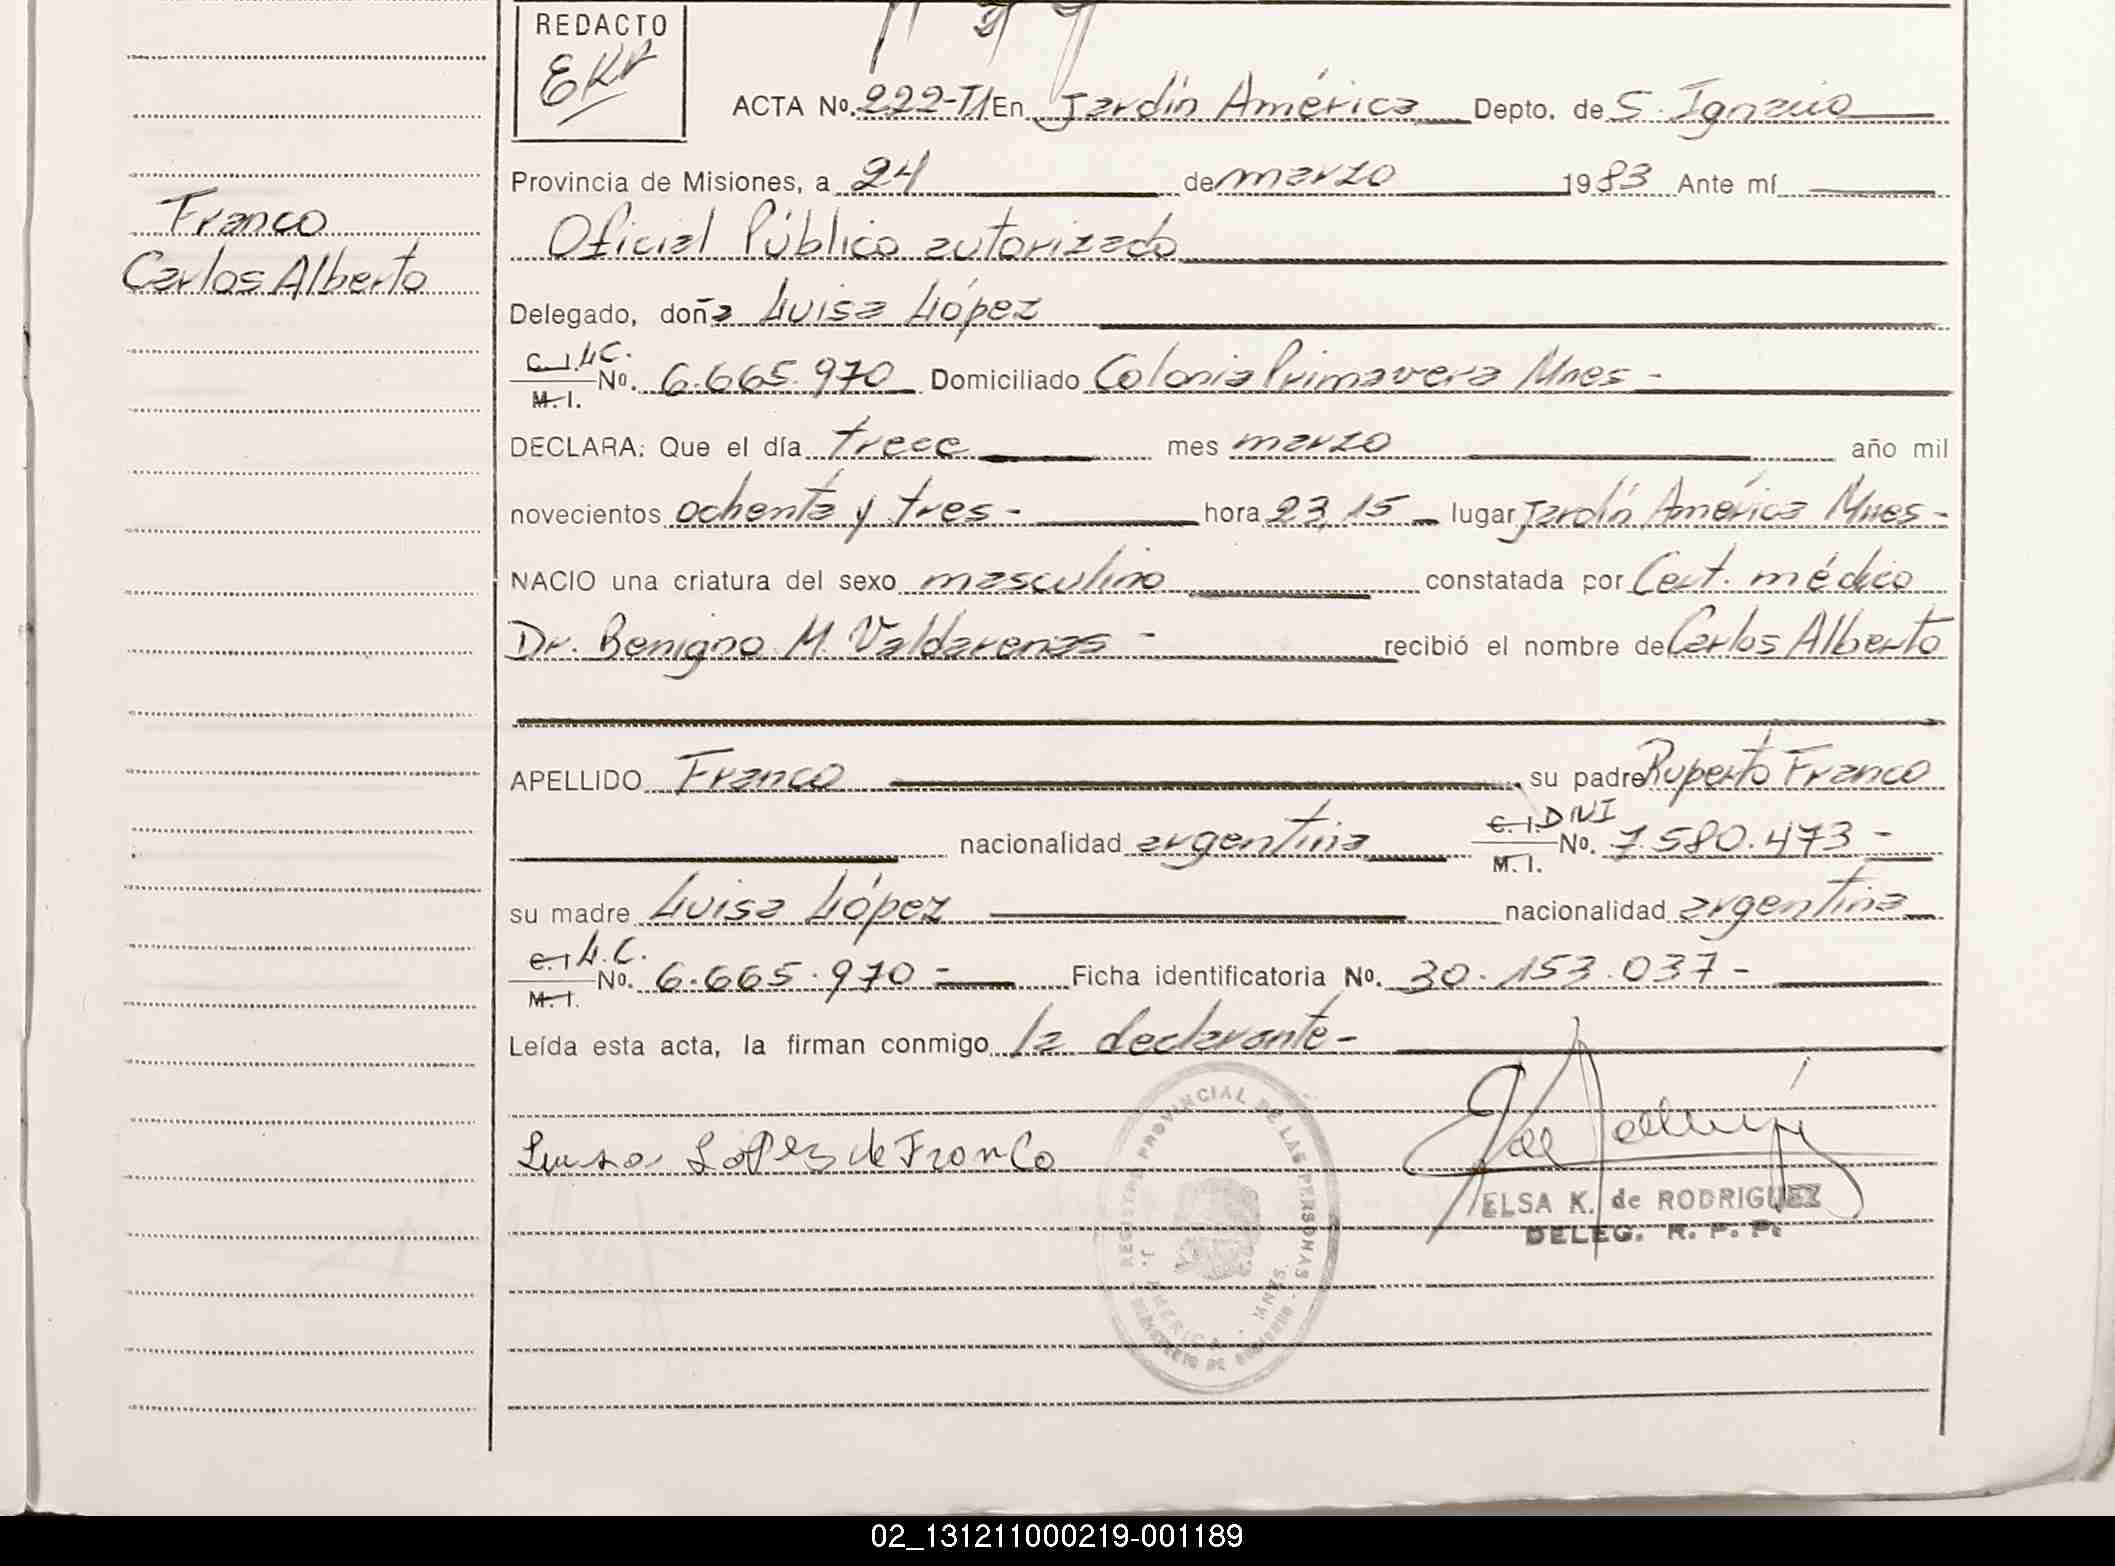 REDACTO
EKR
ACTA No. 222-T1 En Jardín América Depto. de S. Ignacio
Provincia de Misiones, a 24 de marzo 1983 Ante mí
Franco
Oficial Público autorizado
Carlos Alberto
Delegado, doña Luisa López
C.I. L.C.
M.I. No. 6.665.970 Domiciliado Colonia Primavera Mnes -
DECLARA: Que el día trece mes marzo año mil
novecientos ochenta y tres - hora 23,15 lugar Jardín América Mnes -
NACIO una criatura del sexo masculino constatada por Cert. médico
Dr. Benigno M. Valdarenas - recibió el nombre de Carlos Alberto
APELLIDO Franco su padre Ruperto Franco
nacionalidad argentina C.I. DNI M.I. No. 7.580.473 -
su madre Luisa López nacionalidad argentina
C.I. L.C.
M.I. No. 6.665.970 - Ficha identificatoria No. 30.153.037 -
Leída esta acta, la firman conmigo la declarante -
Luisa Lopez de Franco
ELSA K. de RODRIGUEZ
DELEG. R. P. P.
REGISTRO PROVINCIAL DE LAS PERSONAS
J. AMERICA - MNES.
MINISTERIO DE GOBIERNO
02_131211000219-001189